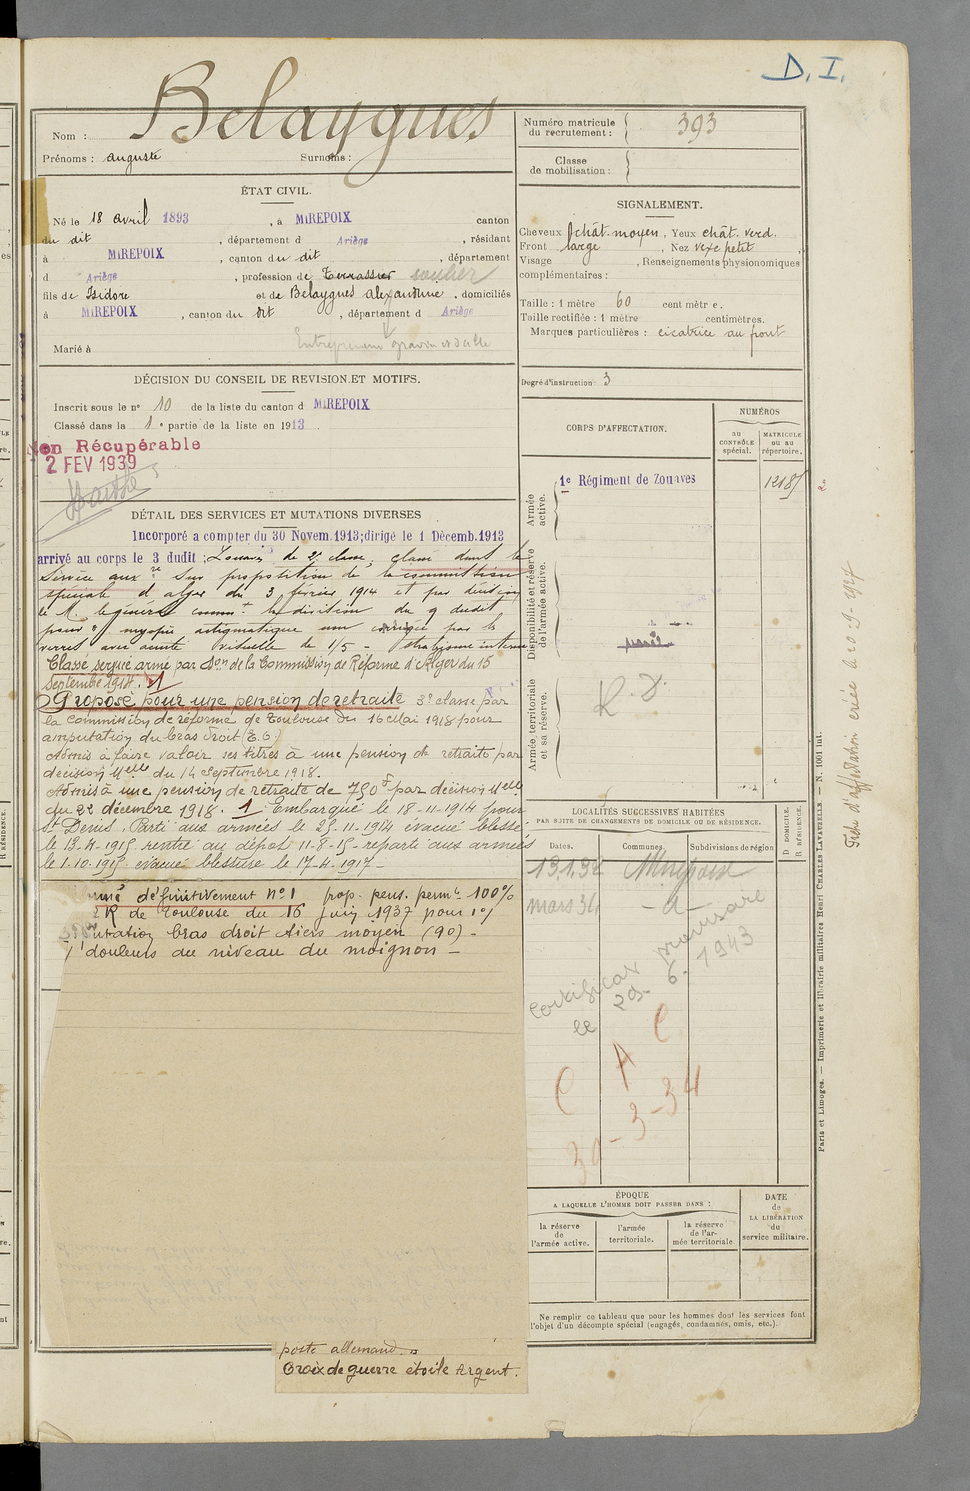 D. I.
Nom : Belaygues
Prénoms : auguste Surnoms :
Numéro matricule du recrutement : 393
Classe de mobilisation :
ÉTAT CIVIL.
Né le 18 avril 1893, à MIREPOIX canton
du dit, département d Ariège, résidant
à MIREPOIX, canton du dit, département
d Ariège, profession de Terrassier
fils de Isidore et de Belaygues Alexandrine, domiciliés
à MIREPOIX, canton du dit, département d Ariège
Entrepreneur gravier et sable
Marié à
SIGNALEMENT.
Cheveux chât. moyen, Yeux chât. verd.
Front large, Nez vexe petit
Visage , Renseignements physionomiques
complémentaires :
Taille : 1 mètre 60 centimètre.
Taille rectifiée : 1 mètre centimètres.
Marques particulières : cicatrice au front
Degré d'instruction : 3
DÉCISION DU CONSEIL DE REVISION ET MOTIFS.
Inscrit sous le n° 10 de la liste du canton d MIREPOIX
Classé dans la 1e partie de la liste en 1913
Non Récupérable
2 FEV 1939
DÉTAIL DES SERVICES ET MUTATIONS DIVERSES
Incorporé a compter du 30 Novem. 1913; dirigé le 1 Décemb. 1913
arrivé au corps le 3 dudit; Zouave de 2e classe, classé dans le
Service aux.re Sur proposition de la commission
spéciale d'alger du 3 février 1914 et par décision
le M. le général comm.t la division du 9 dudit
pour : myopie astigmatique non corrigée par les
verres avec acuité visuelle de 1/5 - Strabisme interne
Classé service armé par don de la Commission de Réforme d'Alger du 15
Septembre 1914. 1
Proposé pour une pension de retraite 3e classe par
la commission de réforme de Toulouse du 16 Mai 1918 pour
amputation du bras droit
Admis à faire valoir ses titres à une pension de retraite par
décision Melle du 14 Septembre 1918.
Admis à une pension de retraite de 750f par décision Melle
du 22 décembre 1918. 1 Embarqué le 18-11-1914 pour
St Denis. Parti aux armées le 25-11-1914 évacué blessé
le 13-4-1915 rentré au dépôt 11-8-15 reparti aux armées
le 1-10-1915 évacué blessure le 17-4-1917-
définitivement N°1 prop. pens. perm.te 100%
CR de Toulouse du 16 Juin 1937 pour 1°/
amputation bras droit tiers moyen (90) -
douleurs au niveau du moignon -
poste allemand
Croix de guerre étoile Argent.
CORPS D'AFFECTATION.
NUMÉROS
au CONTRÔLE spécial.
MATRICULE ou au répertoire.
Armée active.
1e Régiment de Zouaves
12185
Disponibilité et réserve de l'armée active.
Armée territoriale et sa réserve.
LOCALITÉS SUCCESSIVES HABITÉES
PAR SUITE DE CHANGEMENTS DE DOMICILE OU DE RÉSIDENCE.
Dates. Communes. Subdivisions de région
D DOMICILE.
R RÉSIDENCE.
13.1.32 Mirepoix
mars 34 - d -
Certificat provisoire
le 29. 6. 1943
C A C
30-3-34
ÉPOQUE
A LAQUELLE L'HOMME DOIT PASSER DANS :
la réserve de l'armée active.
l'armée territoriale.
la réserve de l'armée territoriale
DATE de LA LIBÉRATION du service militaire.
Ne remplir ce tableau que pour les hommes dont les services font
l'objet d'un décompte spécial (engagés, condamnés, omis, etc.).
Paris et Limoges. — Imprimerie et librairie militaires Henri CHARLES-LAVAUZELLE. — N. 1001 int.
Fiche d'affectation créée le 20-9-1927